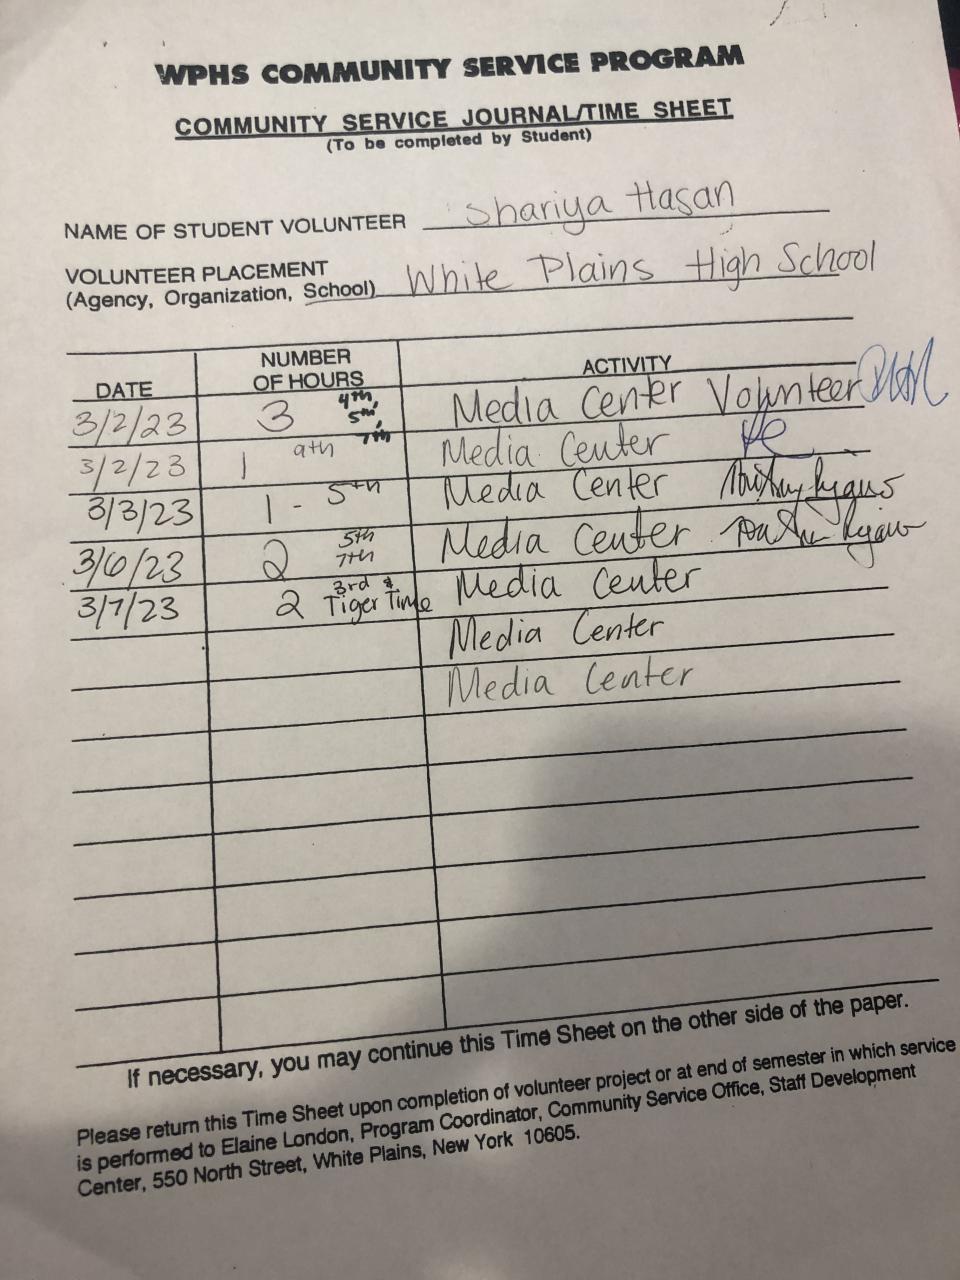 WPHS COMMUNITY SERVICE PROGRAM
COMMUNITY SERVICE JOURNAL/TIME SHEET
(To be completed by Student)
NAME OF STUDENT VOLUNTEER Shariya Hasan
VOLUNTEER PLACEMENT
(Agency, Organization, School) White Plains High School
DATE NUMBER OF HOURS ACTIVITY
3/2/23 3 4th, 5th, 7th Media Center Volunteer
3/2/23 1 9th Media Center
3/3/23 1 - 5th Media Center
3/6/23 2 5th 7th Media Center
3/7/23 2 3rd & Tiger Time Media Center
Media Center
Media Center
If necessary, you may continue this Time Sheet on the other side of the paper.
Please return this Time Sheet upon completion of volunteer project or at end of semester in which service
is performed to Elaine London, Program Coordinator, Community Service Office, Staff Development
Center, 550 North Street, White Plains, New York 10605.